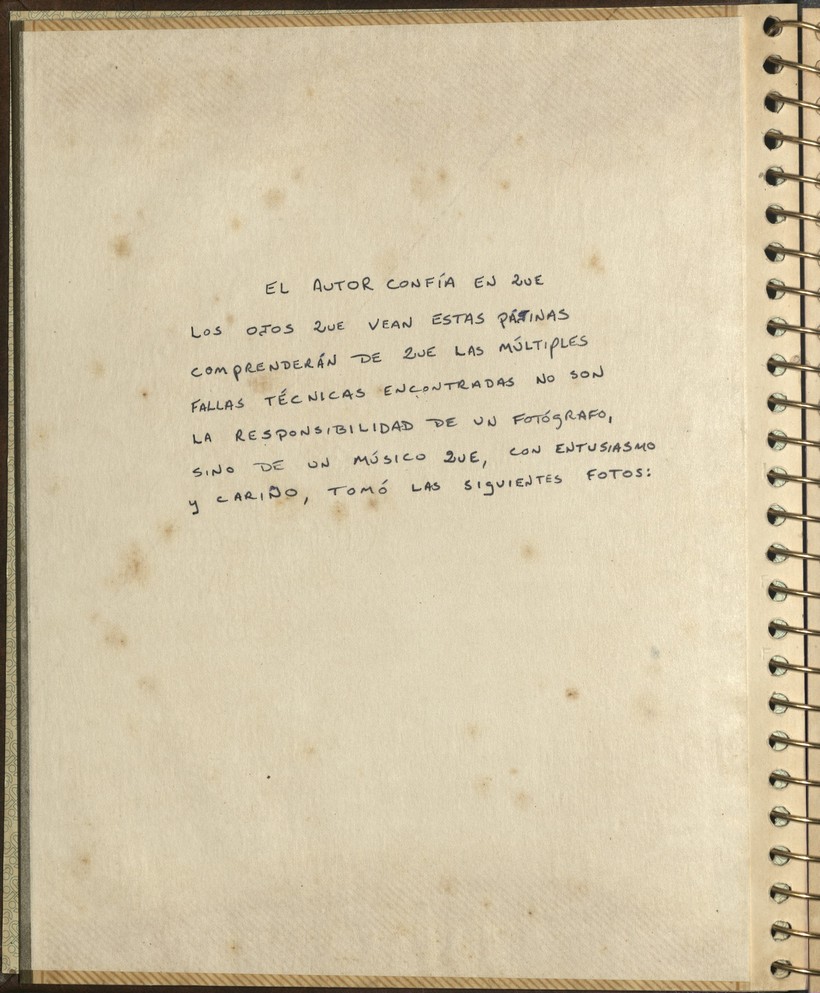 EL AUTOR CONFÍA EN QUE
LOS OJOS QUE VEAN ESTAS PÁGINAS
COMPRENDERÁN DE QUE LAS MÚLTIPLES
FALLAS TÉCNICAS ENCONTRADAS NO SON
LA RESPONSIBILIDAD DE UN FOTÓGRAFO,
SINO DE UN MÚSICO QUE, CON ENTUSIASMO
Y CARIÑO, TOMÓ LAS SIGUIENTES FOTOS: